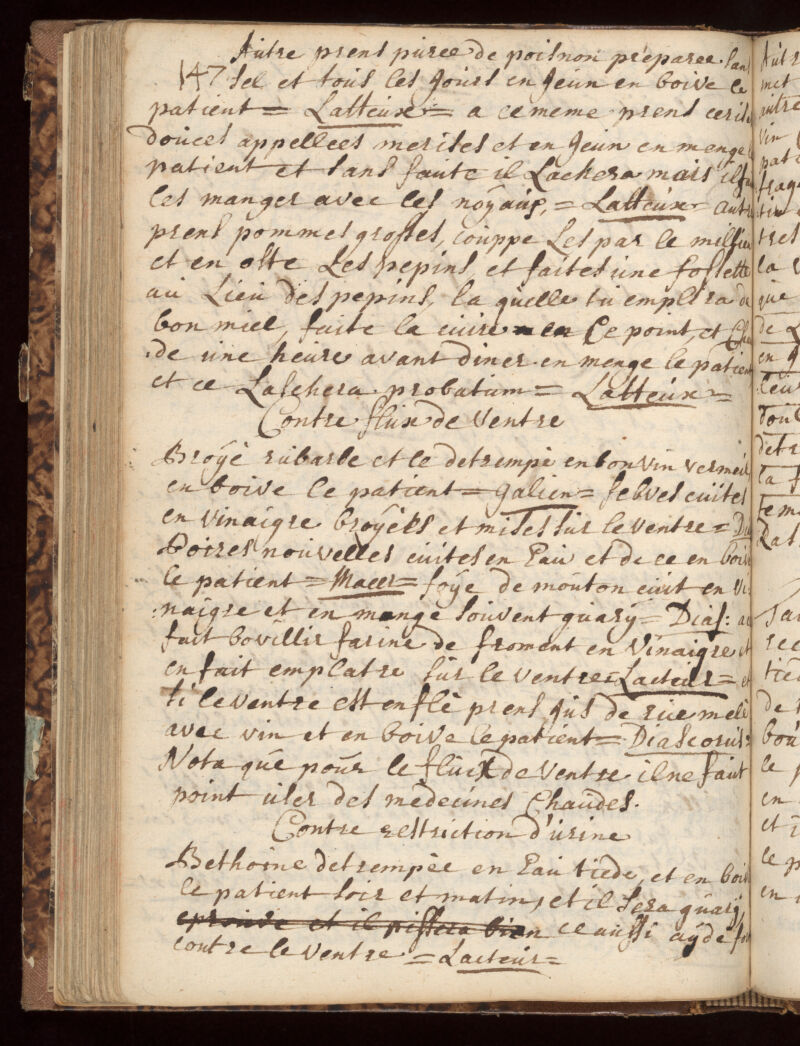 Autre prens puree de pois non preparee. sans
147 sel et tous les Jours en Jeun en boive le
patient = Latteux = a ce meme prens ceris
douces appellees merises et en Jeun en menge
patient et sans faute il Lachera mais il f
les manger avec les noÿaus, = Latteux = autr
prens pommes grosses, couppe Les par le millieu
et en oste Les pepins, et faites une fossette
au Lieu des pepins, la quelle tu emplira de
bon miel, faite la cuire en ce point, et Cha
de une heure avant diner en menge le patien
et ce Laschera probatum = Latteux =
Contre flux de ventre
Broÿé rubarbe et le detrempé en bon vin vermeil
en boive le patient = galien = febves cuites
en vinaigre broÿéés et mises sur le ventre = Di
Poires nouvelles cuites en Eau et de ce en boiv
le patient = Macer = foÿe de mouton cuit en vi
naigre et en menge souvent quarÿ = Dias: au
fait bovillir farine de froment en vinaigre et
en fait emplatre sur le ventre = Lacteur = et
si le ventre est enflé prens Jus de rue melé
avec vin et en boive le patient = Diascorus =
Nota que pour le flux de ventre il ne faut
point user des medecines Chaudes.
Contre restriction d'urine
Bethoine detrempée en Eau tiede, et en boiv
le patient soir et matin, et il sera quarÿ
eprouve et il pissera bien ce aussi aÿde fo
contre le ventre = Lacteur =